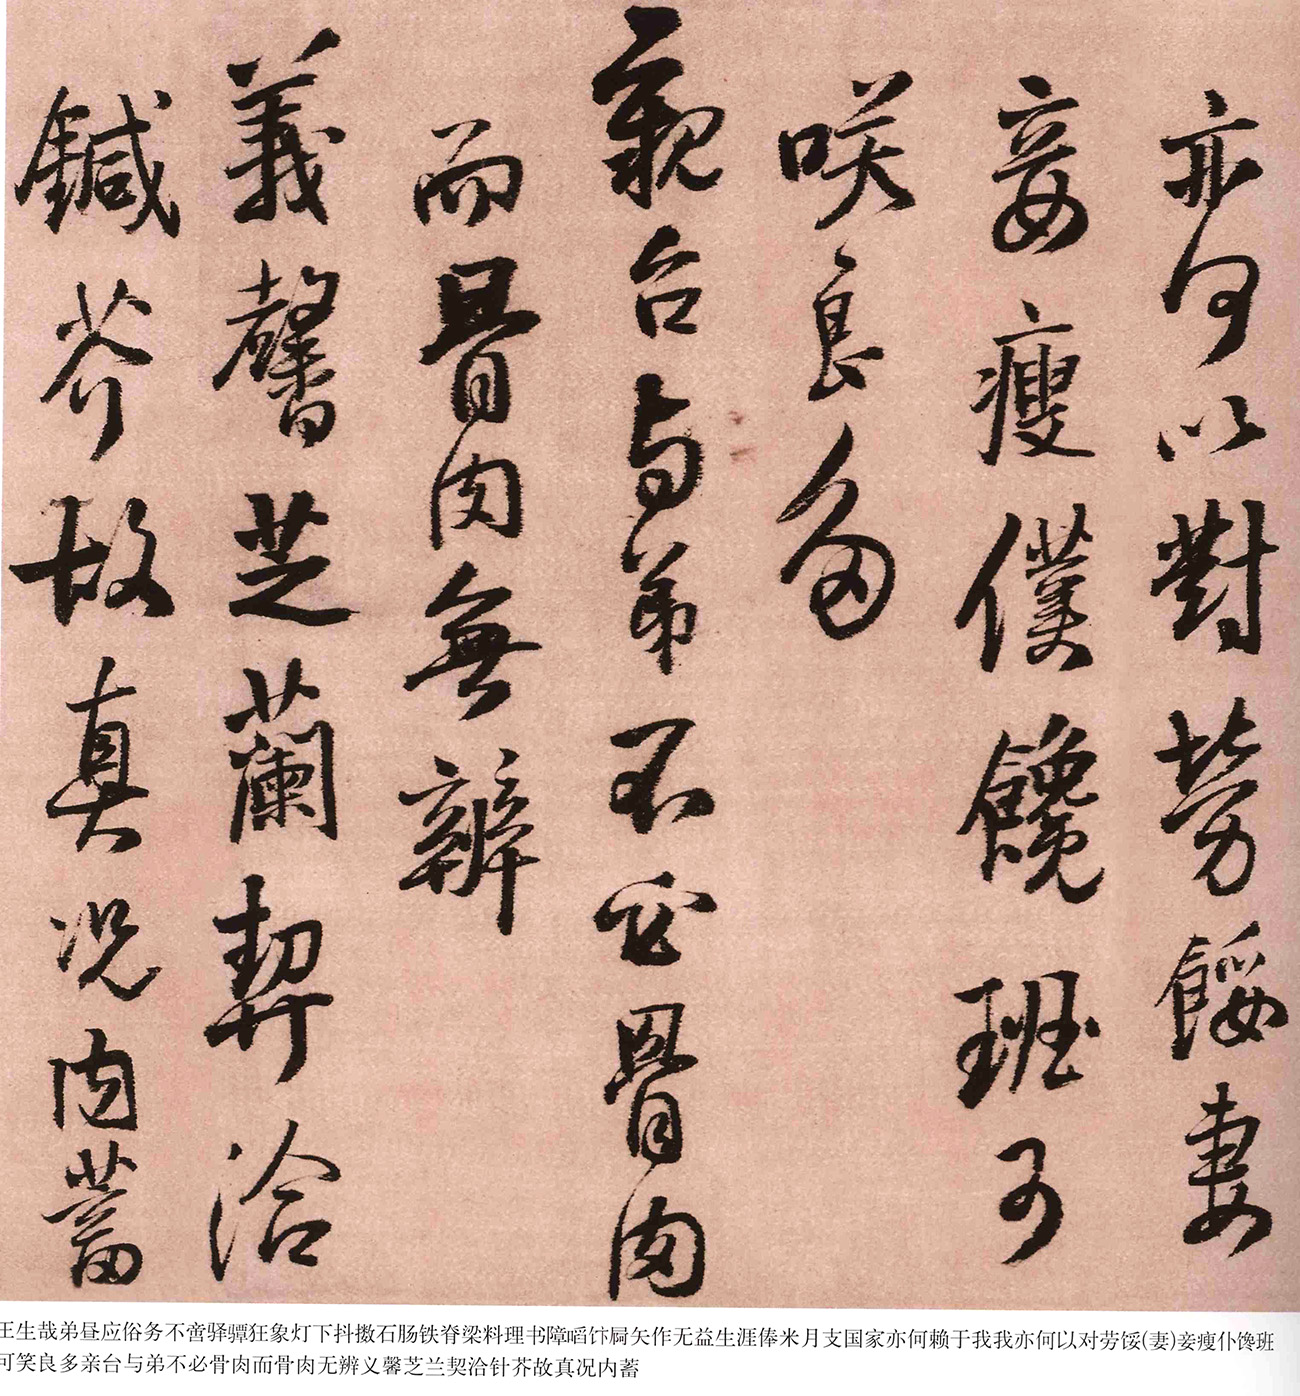 亦何以對勞餒妻
妾瘦僕饞班可
咲良多
親台与弟不必骨肉
而骨肉無辨
義馨芝蘭契洽
鍼芥故真况内蓄
王生哉弟昼应俗务不啻驿骠狂象灯下抖擞石肠铁脊梁料理书障饣卞屙矢作无益生涯俸米月支国家亦何赖于我我亦何以对劳馁(妻)妾瘦仆馋班
可笑良多亲台与弟不必骨肉而骨肉无辨义馨芝兰契洽针芥故真况内蓄